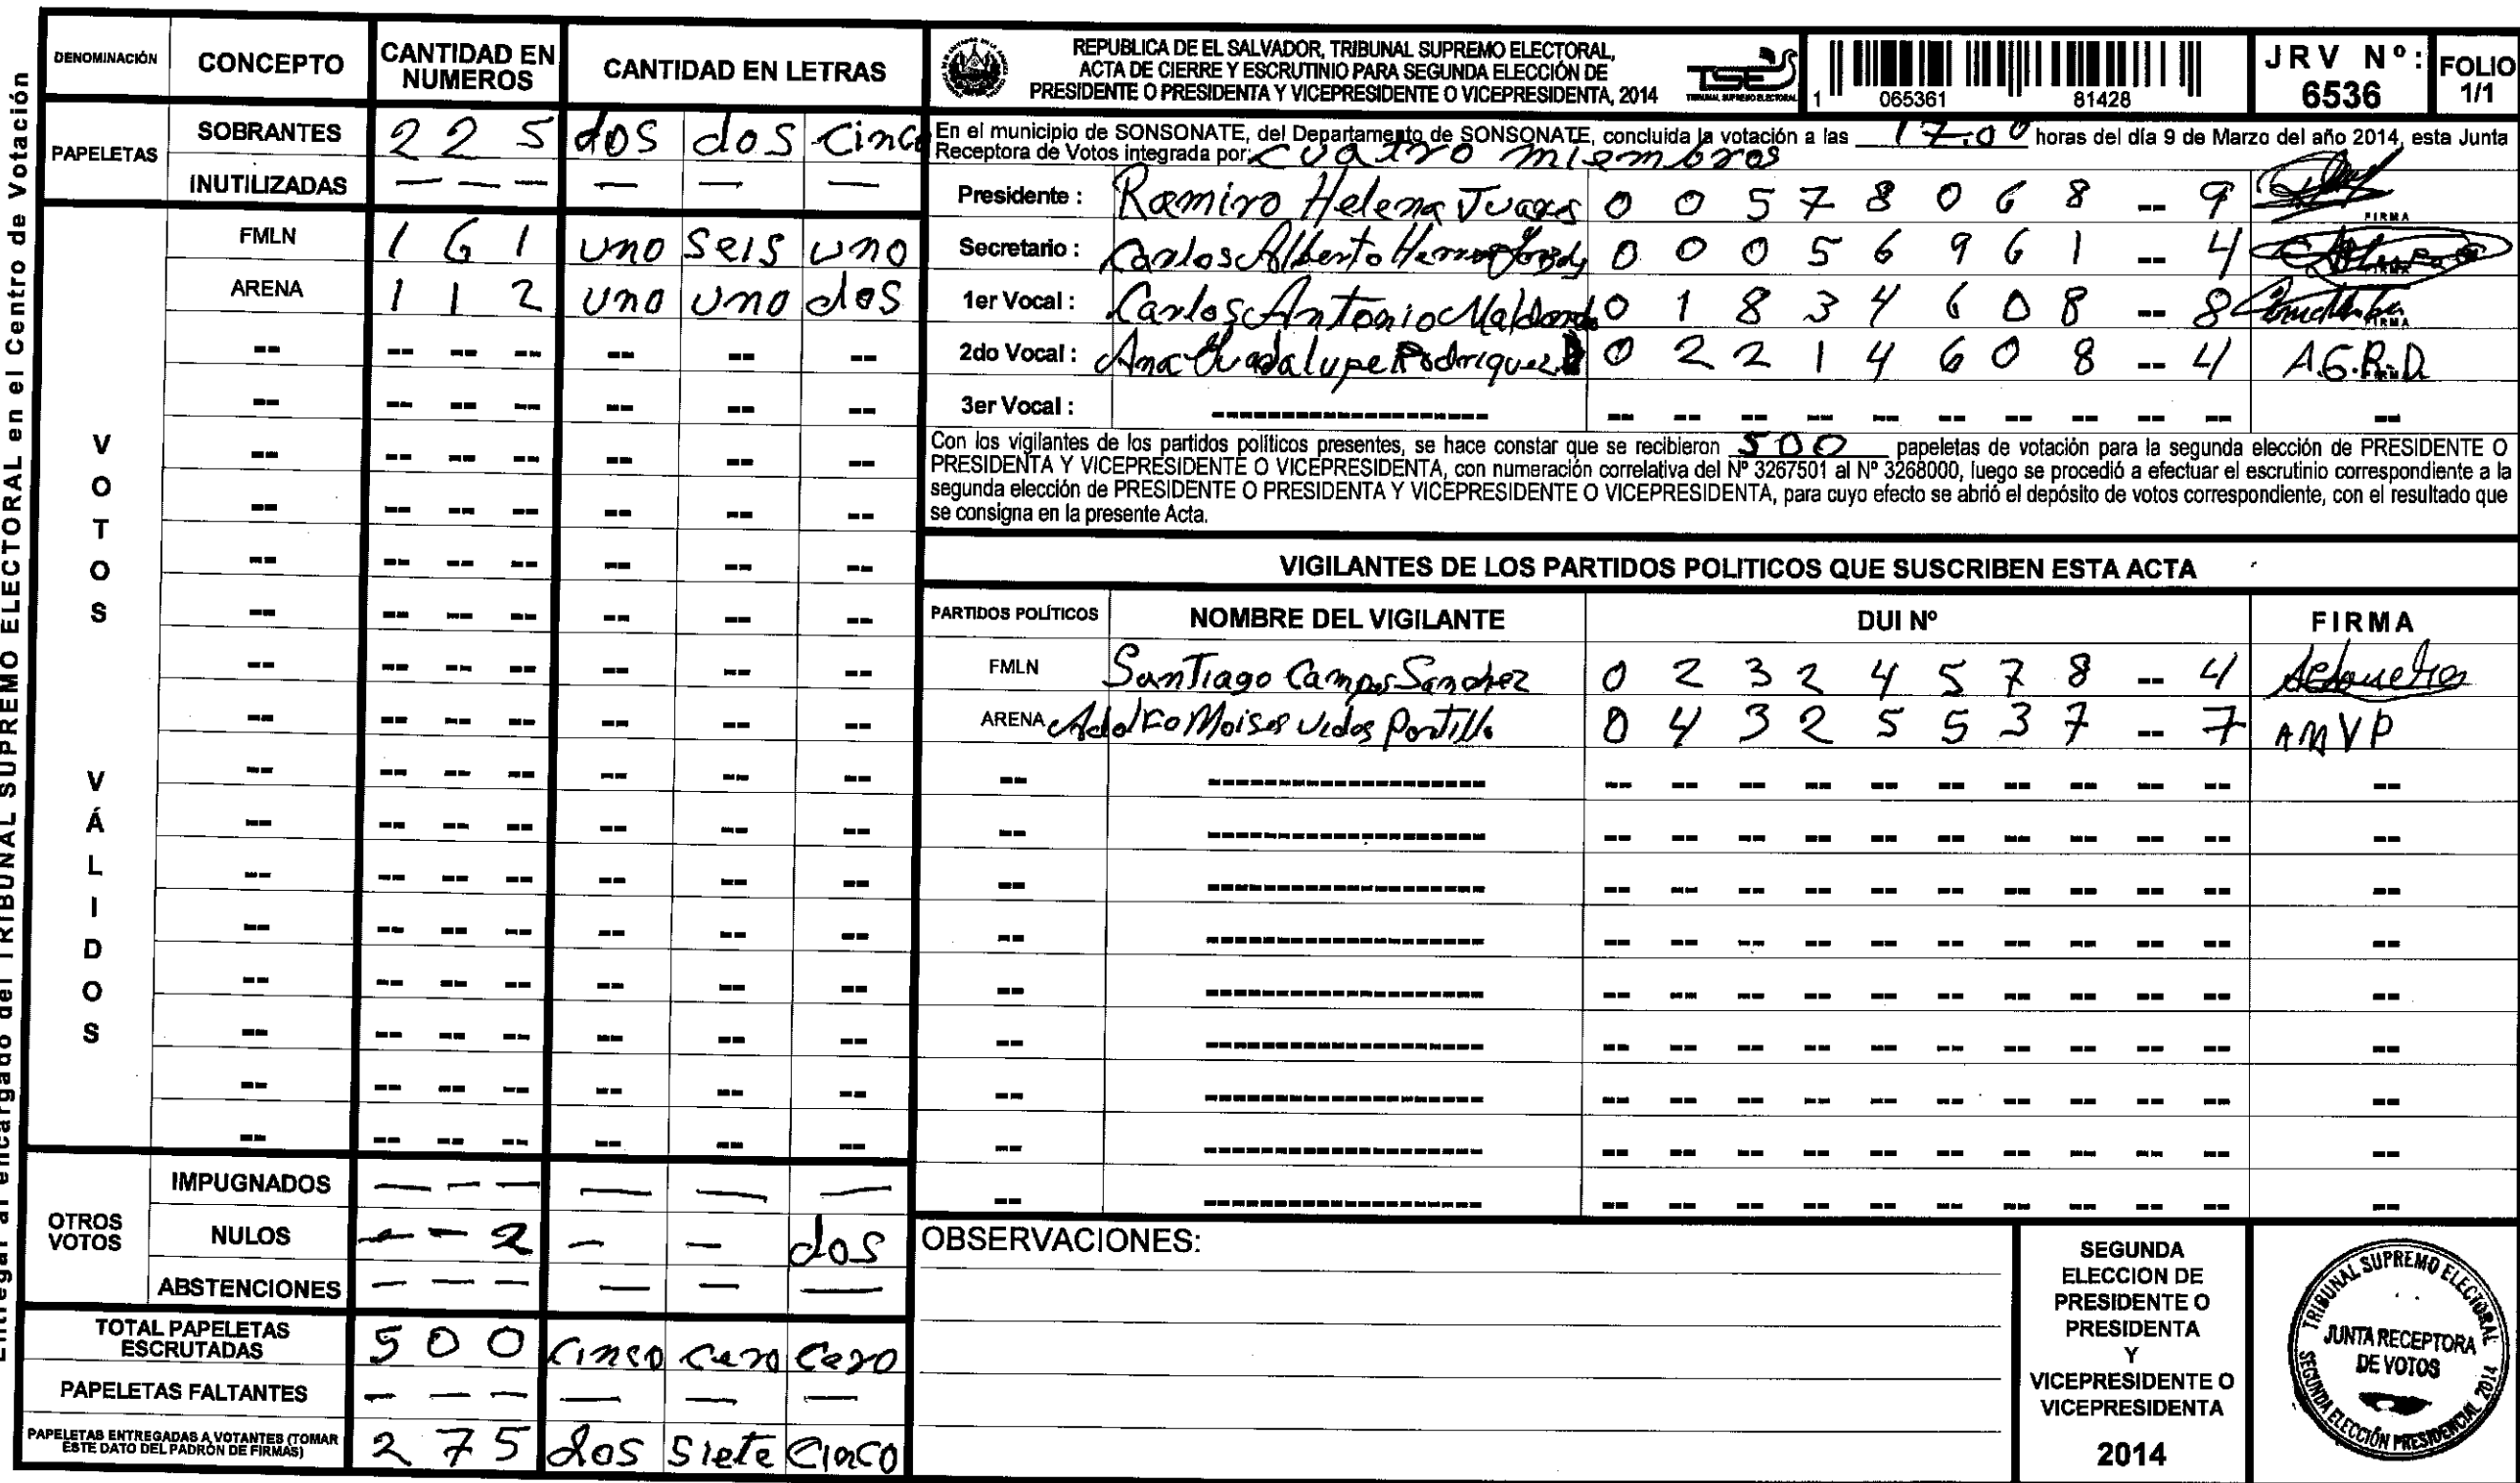 Entregar al encargado del TRIBUNAL SUPREMO ELECTORAL en el Centro de Votación
DENOMINACIÓN CONCEPTO CANTIDAD EN NUMEROS CANTIDAD EN LETRAS
PAPELETAS
SOBRANTES 2 2 5 dos dos cinco
INUTILIZADAS — — — — — —
VOTOS VÁLIDOS
FMLN 1 6 1 uno seis uno
ARENA 1 1 2 uno uno dos
OTROS VOTOS
IMPUGNADOS — — — — — —
NULOS — — 2 — — dos
ABSTENCIONES — — — — — —
TOTAL PAPELETAS ESCRUTADAS 5 0 0 cinco cero cero
PAPELETAS FALTANTES — — — — — —
PAPELETAS ENTREGADAS A VOTANTES (TOMAR ESTE DATO DEL PADRÓN DE FIRMAS) 2 7 5 dos siete cinco
REPUBLICA DE EL SALVADOR, TRIBUNAL SUPREMO ELECTORAL,
ACTA DE CIERRE Y ESCRUTINIO PARA SEGUNDA ELECCIÓN DE
PRESIDENTE O PRESIDENTA Y VICEPRESIDENTE O VICEPRESIDENTA, 2014
TSE
TRIBUNAL SUPREMO ELECTORAL
1 065361 81428
JRV Nº: 6536
FOLIO 1/1
En el municipio de SONSONATE, del Departamento de SONSONATE, concluida la votación a las 17:00 horas del día 9 de Marzo del año 2014, esta Junta
Receptora de Votos integrada por: cuatro miembros
Presidente : Ramiro Helena Juares 0 0 5 7 8 0 6 8 -- 9 FIRMA
Secretario : Carlos Alberto 0 0 0 5 6 9 6 1 -- 4 FIRMA
1er Vocal : Carlos Antonio Maldonado 0 1 8 3 4 6 0 8 -- 8 FIRMA
2do Vocal : Ana Guadalupe Rodriguez 0 2 2 1 4 6 0 8 -- 4 A.G.R.D
3er Vocal : -- -- -- -- -- -- -- -- -- -- --
Con los vigilantes de los partidos políticos presentes, se hace constar que se recibieron 500 papeletas de votación para la segunda elección de PRESIDENTE O
PRESIDENTA Y VICEPRESIDENTE O VICEPRESIDENTA, con numeración correlativa del Nº 3267501 al Nº 3268000, luego se procedió a efectuar el escrutinio correspondiente a la
segunda elección de PRESIDENTE O PRESIDENTA Y VICEPRESIDENTE O VICEPRESIDENTA, para cuyo efecto se abrió el depósito de votos correspondiente, con el resultado que
se consigna en la presente Acta.
VIGILANTES DE LOS PARTIDOS POLITICOS QUE SUSCRIBEN ESTA ACTA
PARTIDOS POLÍTICOS NOMBRE DEL VIGILANTE DUI Nº FIRMA
FMLN Santiago Campos Sanchez 0 2 3 2 4 5 7 8 -- 4
ARENA Adolfo Moises Vides Portillo 0 4 3 2 5 5 3 7 -- 7 AMVP
OBSERVACIONES:
SEGUNDA
ELECCION DE
PRESIDENTE O
PRESIDENTA
Y
VICEPRESIDENTE O
VICEPRESIDENTA
2014
TRIBUNAL SUPREMO ELECTORAL
JUNTA RECEPTORA
DE VOTOS
SEGUNDA ELECCIÓN PRESIDENCIAL 2014